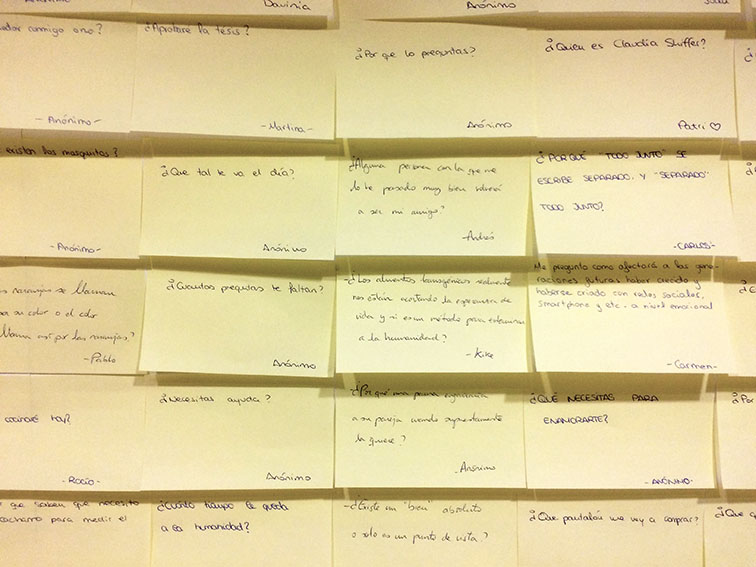 Davinia
Anónimo
conmigo o no?
-Anónimo-
¿Aprobaré la tesis?
-Martina-
¿Por que lo preguntas?
Anónimo
¿Quien es Claudia Shiffer?
Patri ♡
existen las mosquitas?
-Anónimo-
¿Que tal te va el día?
Anónimo
¿Alguna persona con la que me
lo he pasado muy bien volverá
a ser mi amigo?
-Andrés
¿PORQUÉ "TODO JUNTO" SE
ESCRIBE SEPARADO, Y "SEPARADO"
TODO JUNTO?
-CARLES-
naranjas se llaman
su color o el color
llama así por las naranjas?
-Pablo
¿Cuantas preguntas te faltan?
Anónimo
¿Los alimentos transgénicos realmente
nos están acortando la esperanza de
vida y si es un método para exterminar
a la humanidad?
-Kike
Me pregunto como afectará a las gene-
raciones futuras haber crecido y
haberse criado con redes sociales,
smartphone y etc. a nivel emocional
-Carmen-
cocinaré hoy?
-Rocío-
¿Necesitas ayuda?
Anónimo
¿Por qué una persona
a su pareja cuando supuestamente
la quiere?
Anónimo
¿QUÉ NECESITAS PARA
ENAMORARTE?
-ANÓNIMO-
¿Por
que saben que necesito
cacharro para medir el
¿Cuánto tiempo le queda
a la humanidad?
-¿Existe un "bien" absoluto
o solo es un punto de vista?
¿Que pantalón me voy a comprar?
¿Que